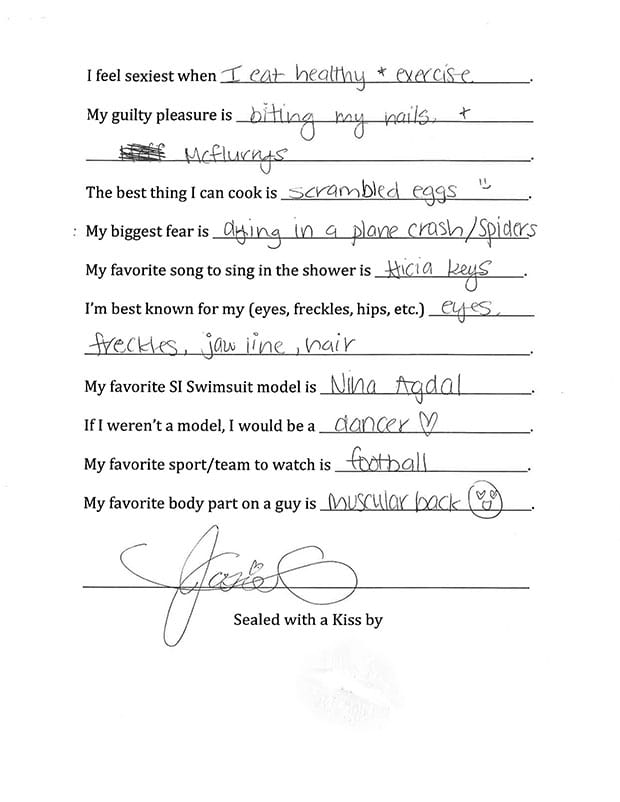 I feel sexiest when I eat healthy + exercise.
My guilty pleasure is biting my nails. +
Mcflurrys.
The best thing I can cook is scrambled eggs.
: My biggest fear is dying in a plane crash/spiders
My favorite song to sing in the shower is Alicia keys.
I'm best known for my (eyes, freckles, hips, etc.) eyes,
freckles, jaw line, hair.
My favorite SI Swimsuit model is Nina Agdal.
If I weren't a model, I would be a dancer ♡.
My favorite sport/team to watch is football.
My favorite body part on a guy is muscular back.
Sealed with a Kiss by